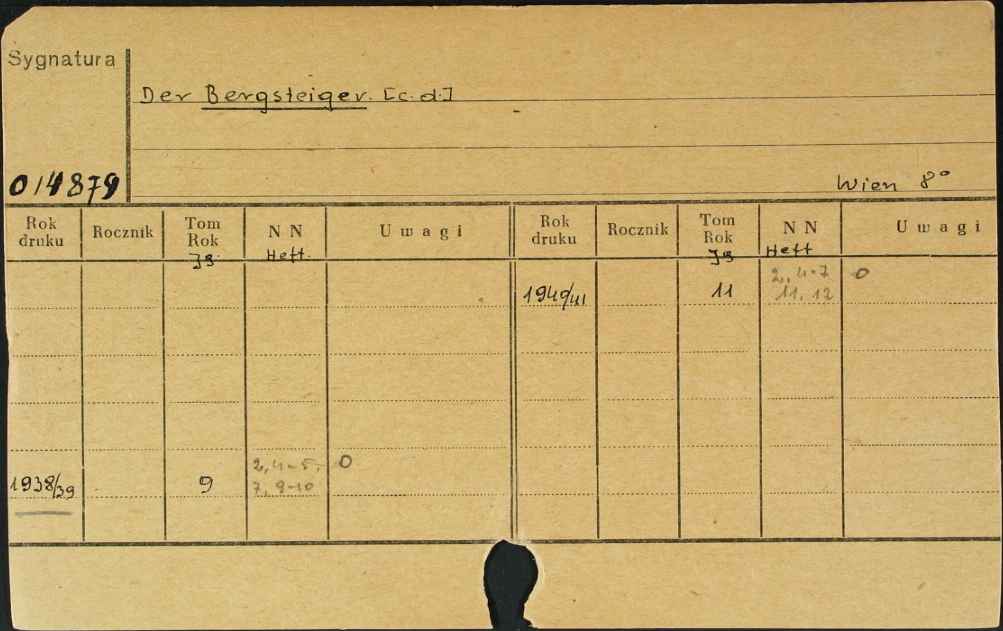 Sygnatura
Der Bergsteiger. [c.d.]
014879
Wien 8°
Rok druku Rocznik Tom Rok N N Uwagi Rok druku Rocznik Tom Rok N N Uwagi
Jg. Heft. Jg Heft
1940/41 11 2, 4-7 11, 12 0
1938/39 9 2, 4-5, 7, 9-10 0